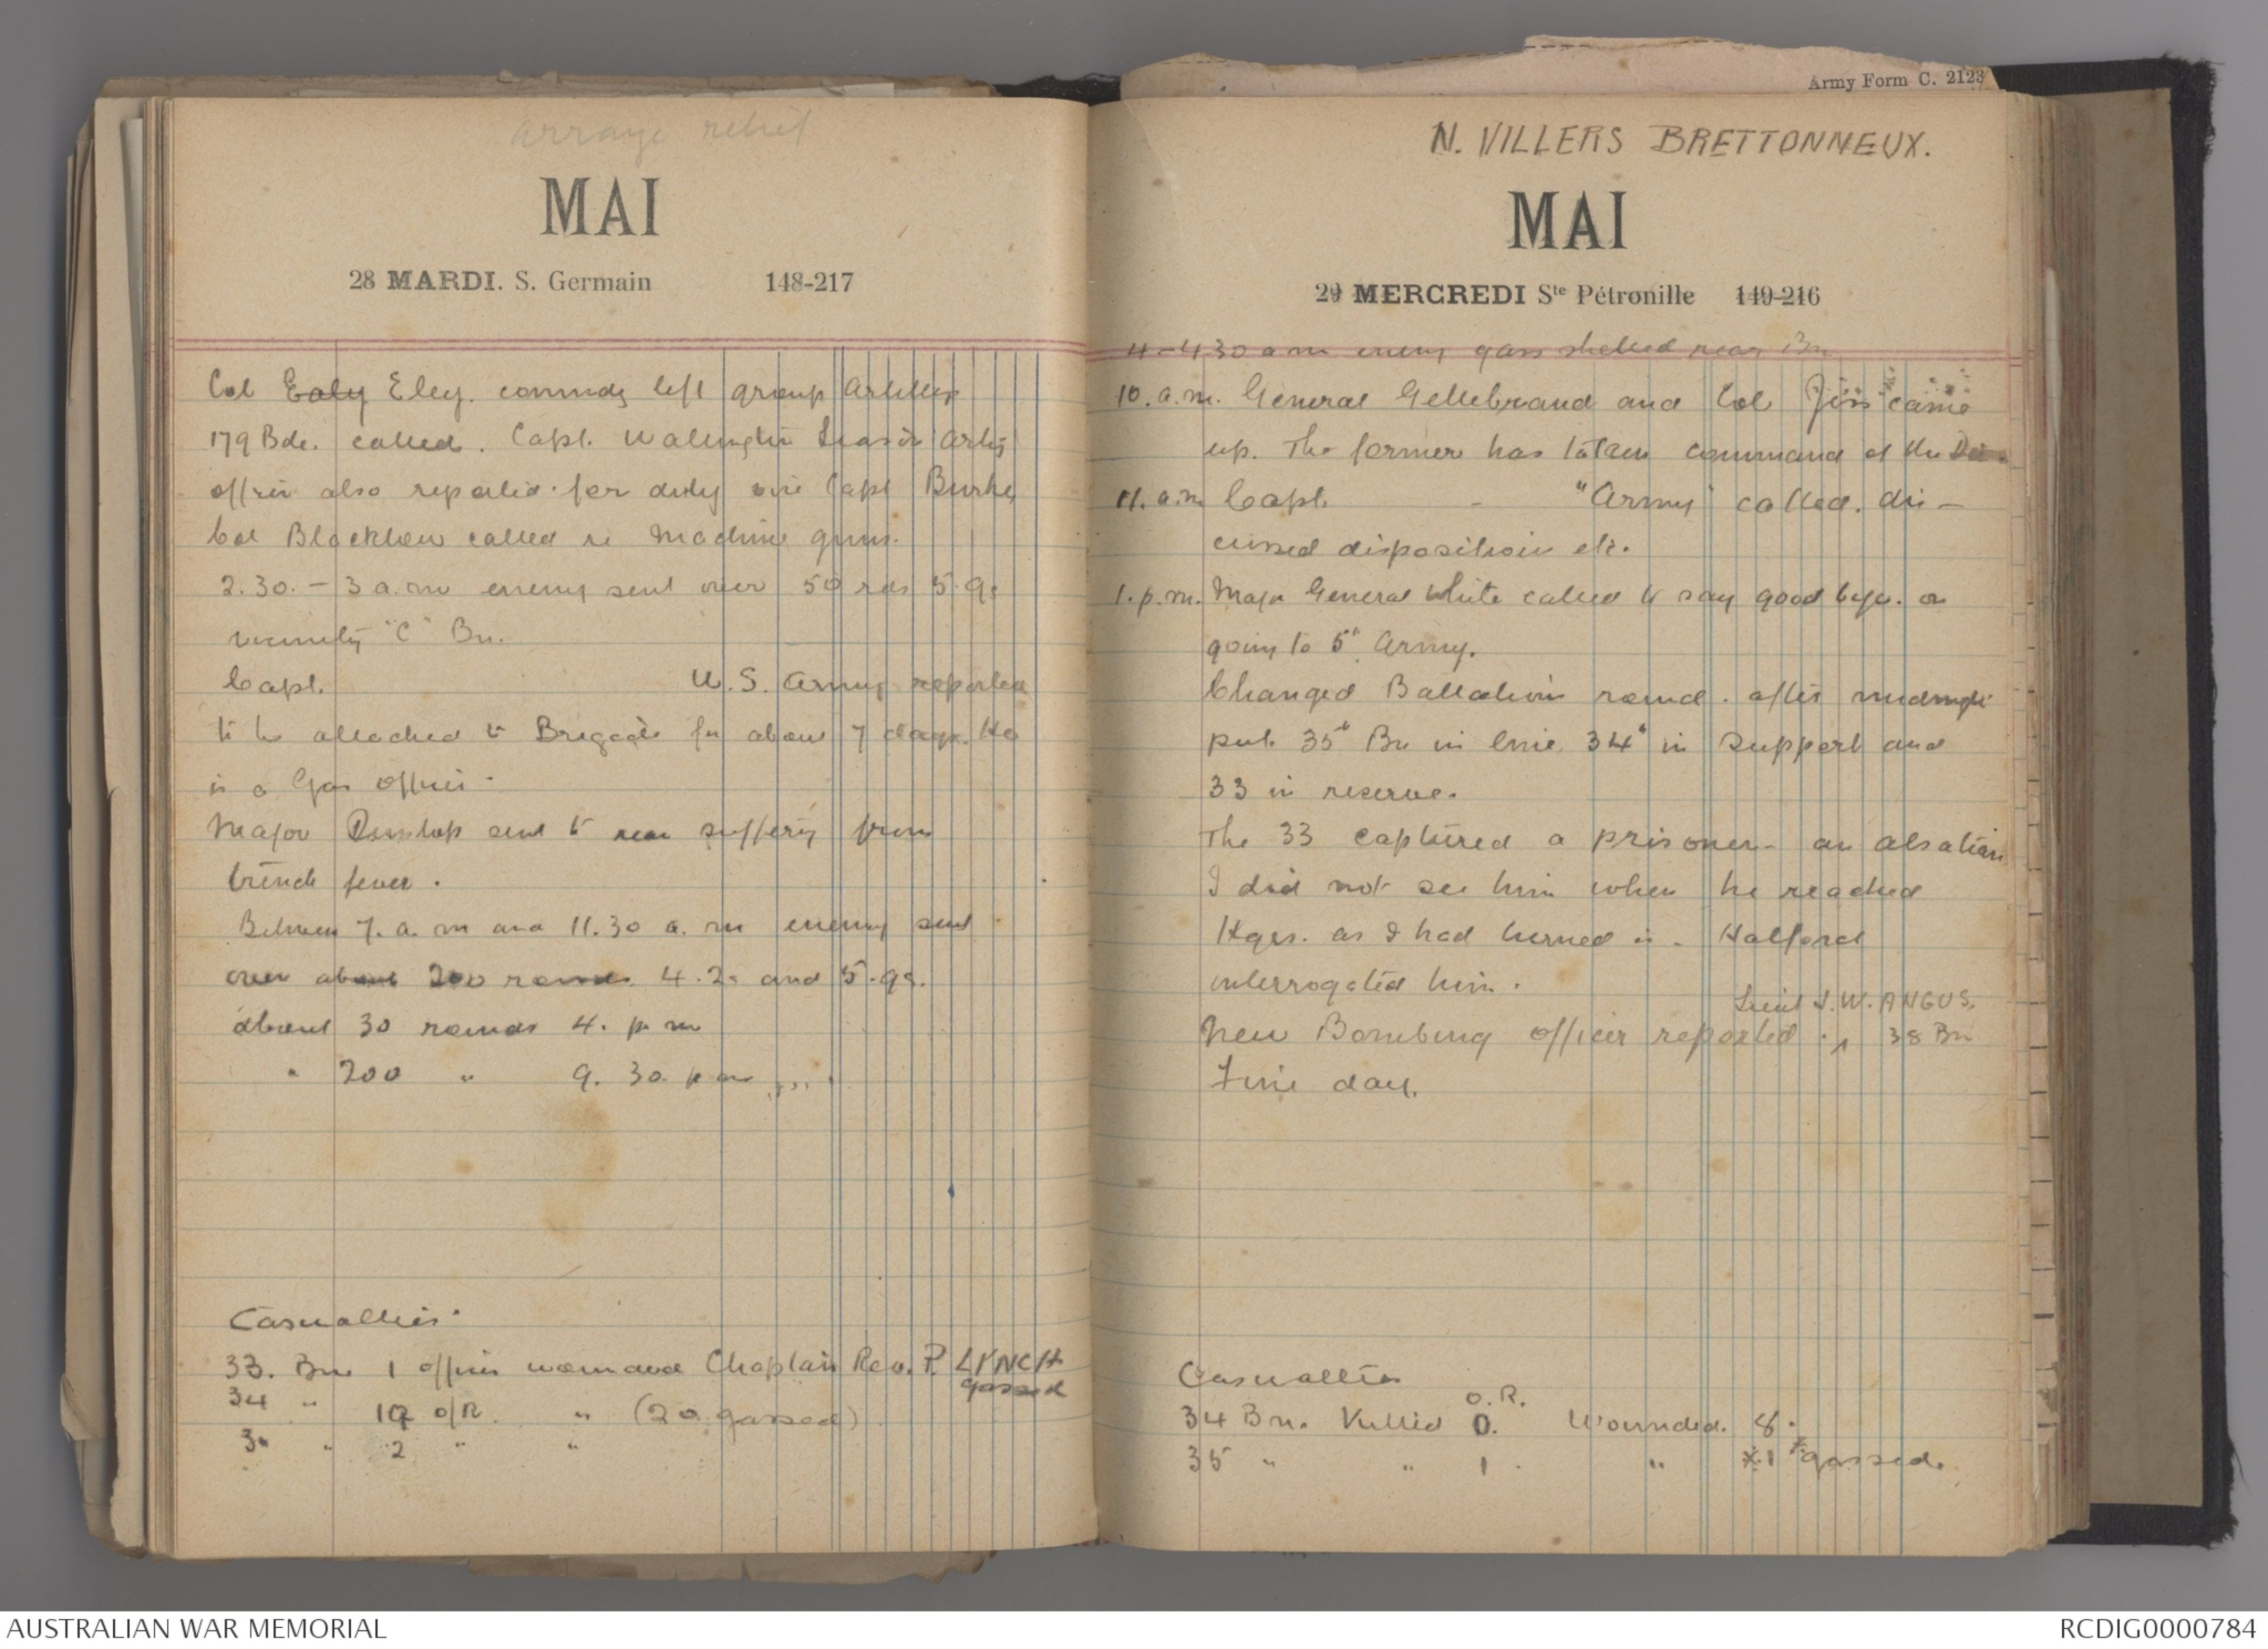 arrange relief
MAI
28 MARDI. S. Germain 148-217
Col Ealy Eley. commdg left group Artillery
179 Bde. called. Capt. Walington liaison Arty
officer also reported for duty vice Capt Burke
Col Blacklow called re Machine guns.
2.30. - 3 a.m enemy sent over 50 rds 5.9s
vicinity "C" Bn.
Capt. U.S. Army reported
to be attached to Brigade for about 7 days. He
is a Gas Officer.
Major Dunlop sent to rear suffering from
trench fever.
Between 7. a.m and 11.30 a.m enemy sent
over about 200 rounds. 4.2s and 5.9s.
about 30 rounds 4. p m
" 200 " 9.30. p m
Casualties.
33. Bn 1 officer wounded Chaplain Rev. P. LYNCH
gassed
34 " O/R. " (20 gassed)
" 2 " "
Army Form C. 2123
N. VILLERS BRETTONNEUX.
MAI
29 MERCREDI Ste Pétronille 149-216
4-4.30 a m enemy gass shelled near Bn
10. a.m. General Gellebrand and Col Jess came
up. The former has taken command of the Div.
11. a.m Capt. - "Army" called. dis-
cussed disposition etc.
1. p.m. Major General White called to say good bye. on
going to 5" Army.
Changed Battalions round. after midnight
put 35" Bn in line 34" in support and
33 in reserve.
The 33 captured a prisoner - an alsatian
I did not see him when he reached
Hqrs. as I had turned in. Halford
interrogated him.
Lieut J.W. ANGUS.
New Bombing officer reported. ^ 38 Bn
Fine day.
Casualties
O.R.
34 Bn. Killed 0. Wounded. 8.
35 " " 1. " *1 *gassed.
AUSTRALIAN WAR MEMORIAL
RCDIG0000784